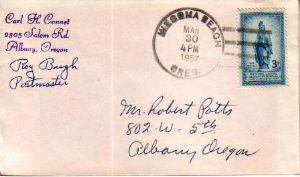 Carl H. Connet
2805 Salem Rd.
Albany, Oregon
Roy Baugh
Postmaster
NESCOMA BEACH
MAR
30
4 PM
1957
OREG.
3¢
Mr. Robert Potts
802-W-5th
Albany Oregon